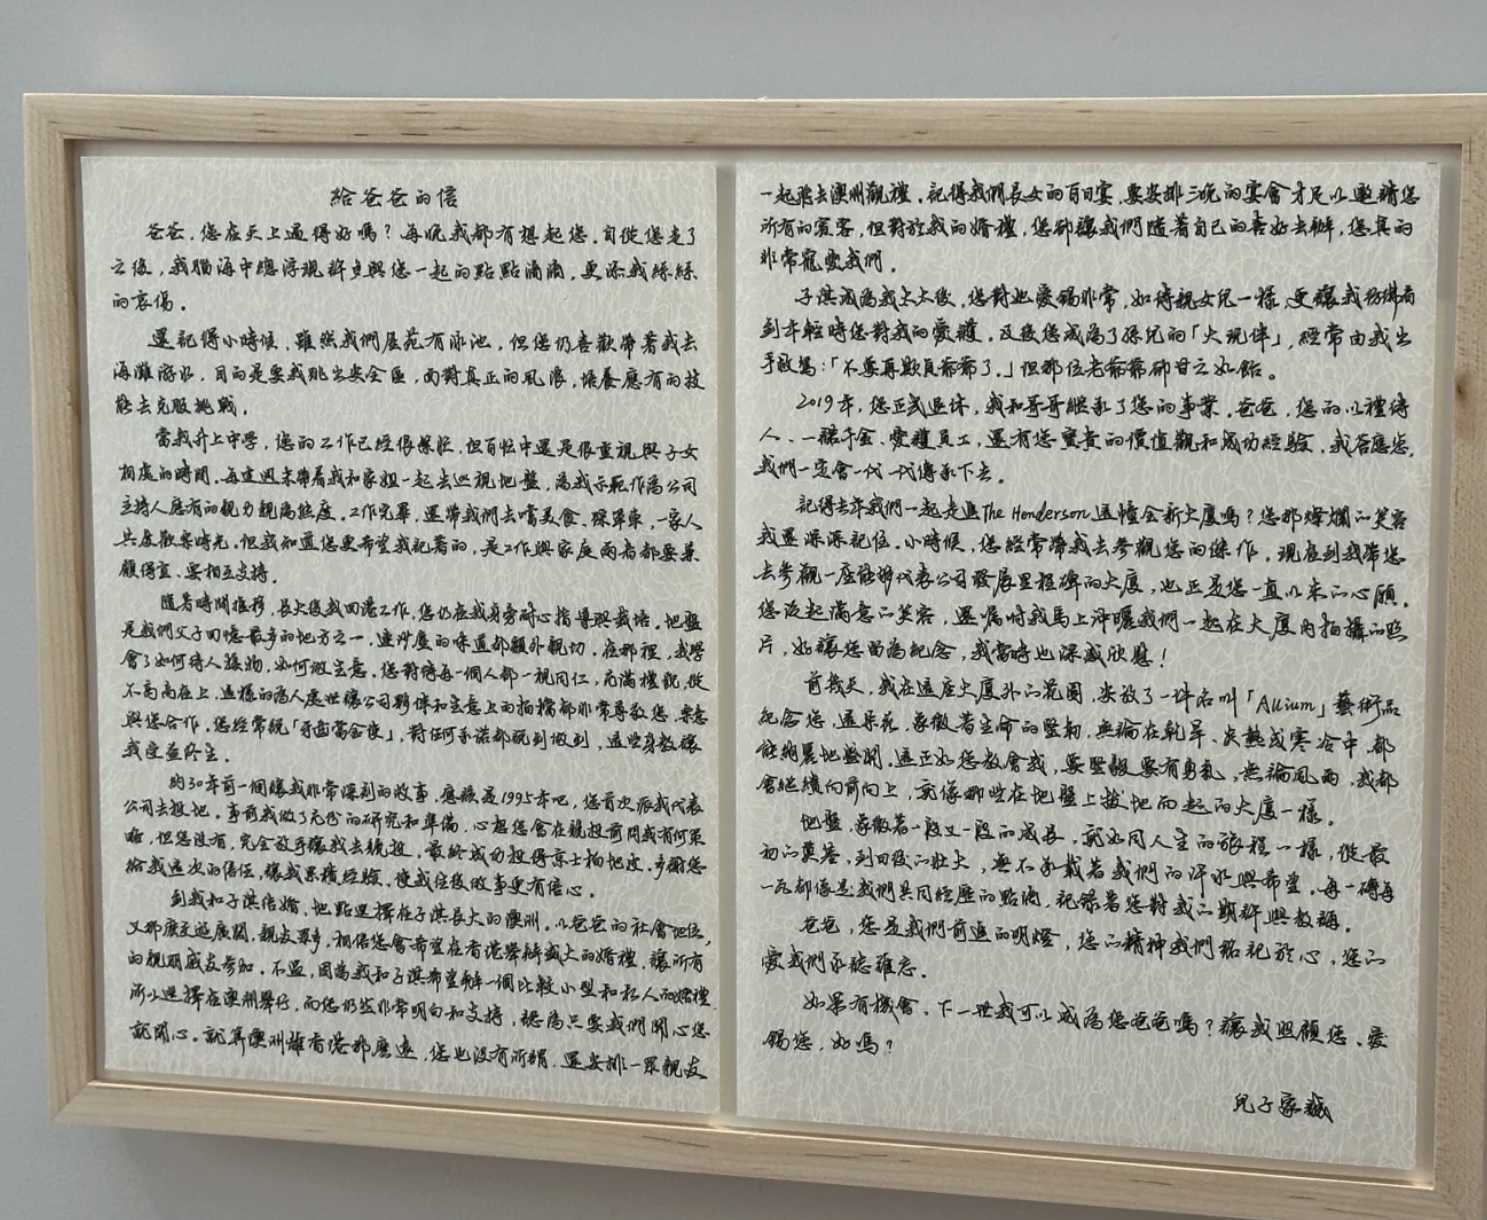 給爸爸的信
爸爸，您在天上過得好嗎？每晚我都有想起您。自從您走了
之後，我腦海中總浮現許多與您一起的點點滴滴，更添我絲絲
的哀傷。
還記得小時候，雖然我們屋苑有泳池，但您仍喜歡帶著我去
海灘游水，目的是要我跳出安全區，面對真正的風浪，培養應有的技
能去克服挑戰。
當我升上中學，您的工作已經很繁忙，但百忙中還是很重視與子女
相處的時間。每逢週末帶着我和家姐一起去巡視地盤，為我示範作為公司
主持人應有的親力親為態度。工作完畢，還帶我們去嚐美食、踩單車，一家人
共度歡樂時光。但我知道您更希望我記著的，是工作與家庭兩者都要兼
顧得宜、要相互支持。
隨着時間推移，長大後我回港工作，您仍在我身旁耐心指導與栽培。地盤
是我們父子回憶最多的地方之一，連沙塵的味道都額外親切。在那裡，我學
會了如何待人接物，如何做生意。您對待每一個人都一視同仁，充滿禮貌，從
不高高在上，這樣的為人處世讓公司夥伴和生意上的拍檔都非常尊敬您，樂意
與您合作。您經常說「牙齒當金使」，對任何承諾都說到做到，這些身教讓
我受益終生。
約30年前一個讓我非常深刻的故事，應該是1995年吧，您首次派我代表
公司去投地。事前我做了充份的研究和準備，心想您會在競投前問我有何策
略，但您沒有，完全放手讓我去競投，最終成功投得京士柏地皮。多謝您
給我這次的信任，讓我累積經驗，使我往後做事更有信心。
到我和子淇結婚，地點選擇在子淇長大的澳洲。以爸爸的社會地位，
又那麼交遊廣闊，親友眾多，相信您會希望在香港舉辦盛大的婚禮，讓所有
的親朋戚友參加。不過，因為我和子淇希望辦一個比較小型和私人的婚禮，
所以選擇在澳洲舉行，而您仍然非常明白和支持，認為只要我們開心您
就開心。就算澳洲離香港那麼遠，您也沒有所謂，還安排一眾親友
一起飛去澳洲觀禮。記得我們長女的百日宴，要安排三晚的宴會才足以邀請您
所有的賓客，但對於我的婚禮，您卻讓我們隨著自己的喜好去辦，您真的
非常寵愛我們。
子淇成為我太太後，您對她愛錫非常，如待親女兒一樣，更讓我彷彿看
到年輕時您對我的愛護。及後您成為了孫兒的「大玩伴」，經常由我出
手政＿：「不要再欺負爺爺了。」但那位老爺爺卻甘之如飴。
2019年，您正式退休，我和哥哥繼承了您的事業。爸爸，您的以禮待
人、一諾千金、愛護員工，還有您寶貴的價值觀和成功經驗，我答應您，
我們一定會一代一代傳承下去。
記得去年我們一起走進The Henderson這幢全新大廈嗎？您那燦爛的笑容
我還深深記住。小時候，您經常帶我去參觀您的傑作，現在到我帶您
去參觀一座能夠代表公司發展里程碑的大廈，也正是您一直以來的心願。
您泛起滿意的笑容，還囑咐我馬上沖曬我們一起在大廈內拍攝的照
片，好讓您留為紀念，我當時也深感欣慰！
前幾天，我在這座大廈外的花園，安放了一件名叫「Allium」藝術品
紀念您，這朵花，象徵着生命的堅韌，無論在乾旱、炎熱或寒冷中，都
能絢麗地盛開。這正如您教會我，要堅毅要有勇氣，無論風雨，我都
會繼續向前向上，就像那些在地盤上拔地而起的大廈一樣。
地盤，象徵着一段又一段的成長，就如同人生的旅程一樣，從最
初的奠基，到日後的壯大，無不承載着我們的汗水與希望。每一磚每
一瓦都像是我們共同經歷的點滴，記錄着您對我的期許與教誨。
爸爸，您是我們前進的明燈，您的精神我們銘記於心，您的
愛我們永遠難忘。
如果有機會，下一世我可以成為您爸爸嗎？讓我照顧您、愛
錫您，好嗎？
兒子家誠